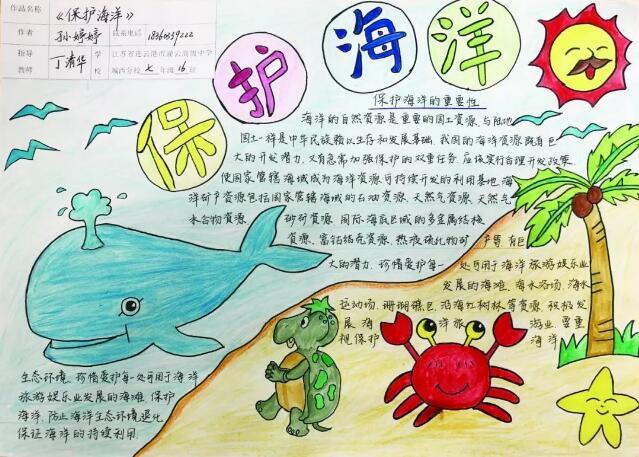 作品名称 《保护海洋》
作者 孙婷婷 联系电话 18360539222
指导 丁清华 学 江苏省连云港市灌云高级中学
教师 校 城西分校 七 年级 16 班
保护海洋
保护海洋的重要性
海洋的自然资源是重要的国土资源,与陆地
国土一样是中华民族赖以生存和发展基础,我国的海洋资源既有巨
大的开发潜力,又有急需加强保护的双重任务,应该实行合理开发政策
使国家管辖海域成为海洋资源可持续开发的利用基地,海
洋矿产资源包括国家管辖海域的石油资源,天然气资源,天然气
水合物资源 砂矿资源 国际海底区域的多金属结核
资源,富钴结壳资源,热液硫化物矿 产等,有巨
大的潜力,珍惜爱护每一 处可用于海洋旅游娱乐业
发展的海滩,海水浴场,海水
运动场,珊瑚礁色,沿海红树林等资源,积极发
展 海 洋旅 游业,要重
视保护 海洋
生态环境,珍惜爱护每一处可用于海洋
旅游娱乐业发展的海滩,保护
海洋,防止海洋生态环境退化
保证海洋的持续利用